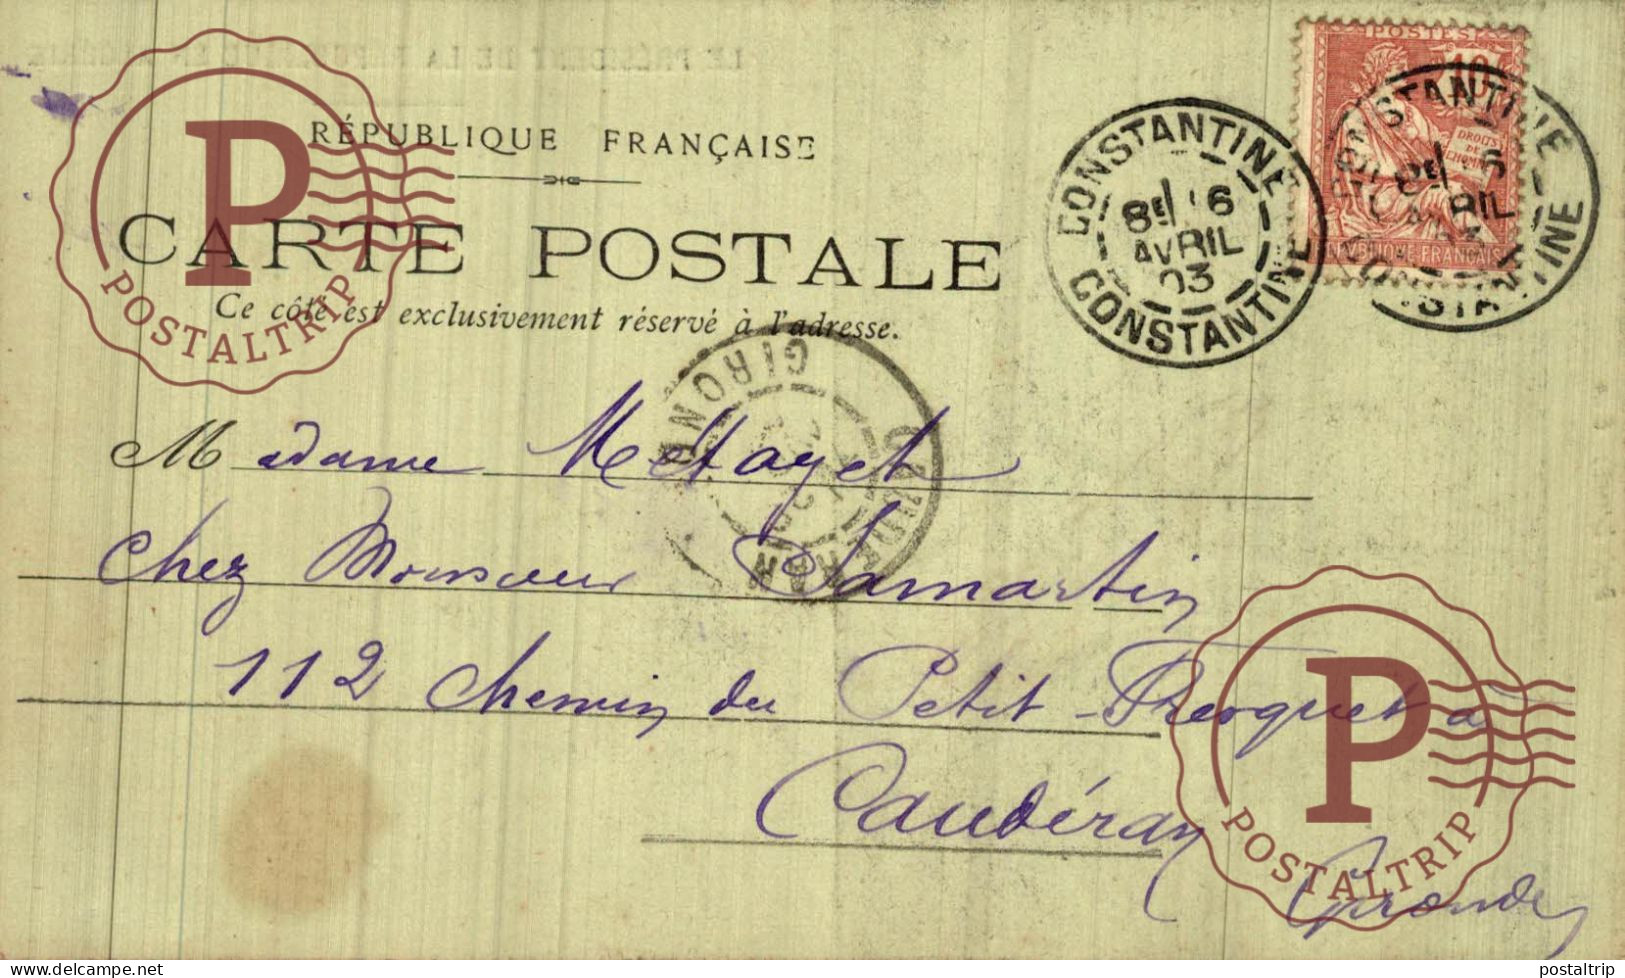 RÉPUBLIQUE FRANÇAISE
CARTE POSTALE
Ce côté est exclusivement réservé à l'adresse.
POSTES
10
DROITS DE L'HOMME
RÉPUBLIQUE FRANÇAISE
CONSTANTINE
8E 6
AVRIL
03
CONSTANTINE
CONSTANTINE
8E 6
AVRIL
03
CONSTANTINE
GIRONDE
CAUDERAN
Madame Metayet
chez Monsieur Samartin
112 Chemin du Petit-Freyquet à
Caudéran
Gironde
P
POSTALTRIP
P
POSTALTRIP
delcampe.net
postaltrip